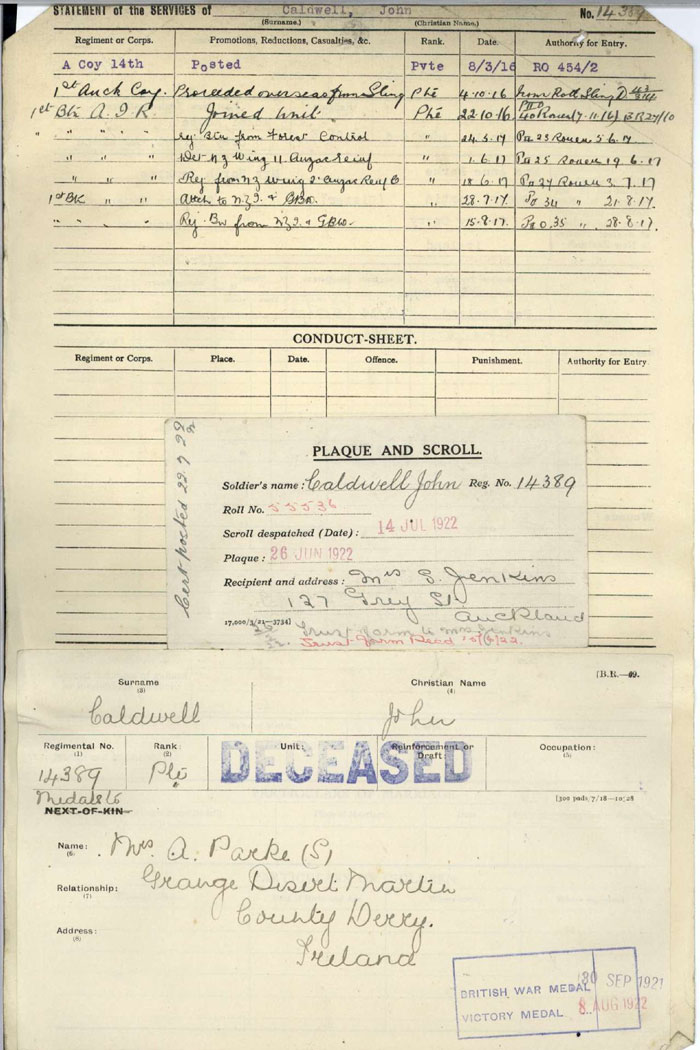 STATEMENT of the SERVICES of Caldwell, John No. 14389
(Surname.) (Christian Name.)
Regiment or Corps. Promotions, Reductions, Casualties, &c. Rank. Date. Authority for Entry.
A Coy 14th Posted Pvte 8/3/16 RO 454/2
1st Auck Coy. Proceeded overseas from Sling Pte 4.10.16 from Roll Sling D
1st Btn A.I.R. Joined Unit Pte 22.10.16
" " " " Rej Btn from Forest Control " 24.5.17 Pa 23 Rouen 5.6.17
" " " Det NZ Wing 11 Anzac Reinf " 1.6.17 Pa 25 Rouen 19.6.17
" " " Rej from NZ Wing 2 Anzac Reinf " 18.6.17 Pa 27 Rouen 3.7.17
1st Bn " " Attch to N.Z. " 28.7.17. Po 34 " 21.8.17.
" " " Rej Bn from N.Z. " 15.8.17. Po 35 " 28.8.17.
CONDUCT-SHEET.
Regiment or Corps. Place. Date. Offence. Punishment. Authority for Entry
Cert posted 22.7
PLAQUE AND SCROLL.
Soldier's name: Caldwell John Reg. No. 14389
Roll No. 55536
Scroll despatched (Date): 14 JUL 1922
Plaque: 26 JUN 1922
Recipient and address: Mrs S. Jenkins
127 Grey St.
Auckland
17,000/3/21—3734]
Trust form to Mrs Jenkins
Trust form Recd
[B.R.—09.
Surname Christian Name
(3) (4)
Caldwell John
Regimental No. Rank: Unit: Reinforcement or Draft: Occupation:
(1) (2) (5)
14389 Pte DECEASED
Medals to
NEXT-OF-KIN
[300 pads/7/18—10728
Name: Mrs. A. Parke (S)
(6)
Relationship: Grange Disert Martin
(7)
County Derry.
Address:
(8)
Ireland
BRITISH WAR MEDAL 30 SEP 1921
VICTORY MEDAL 8 AUG 1922